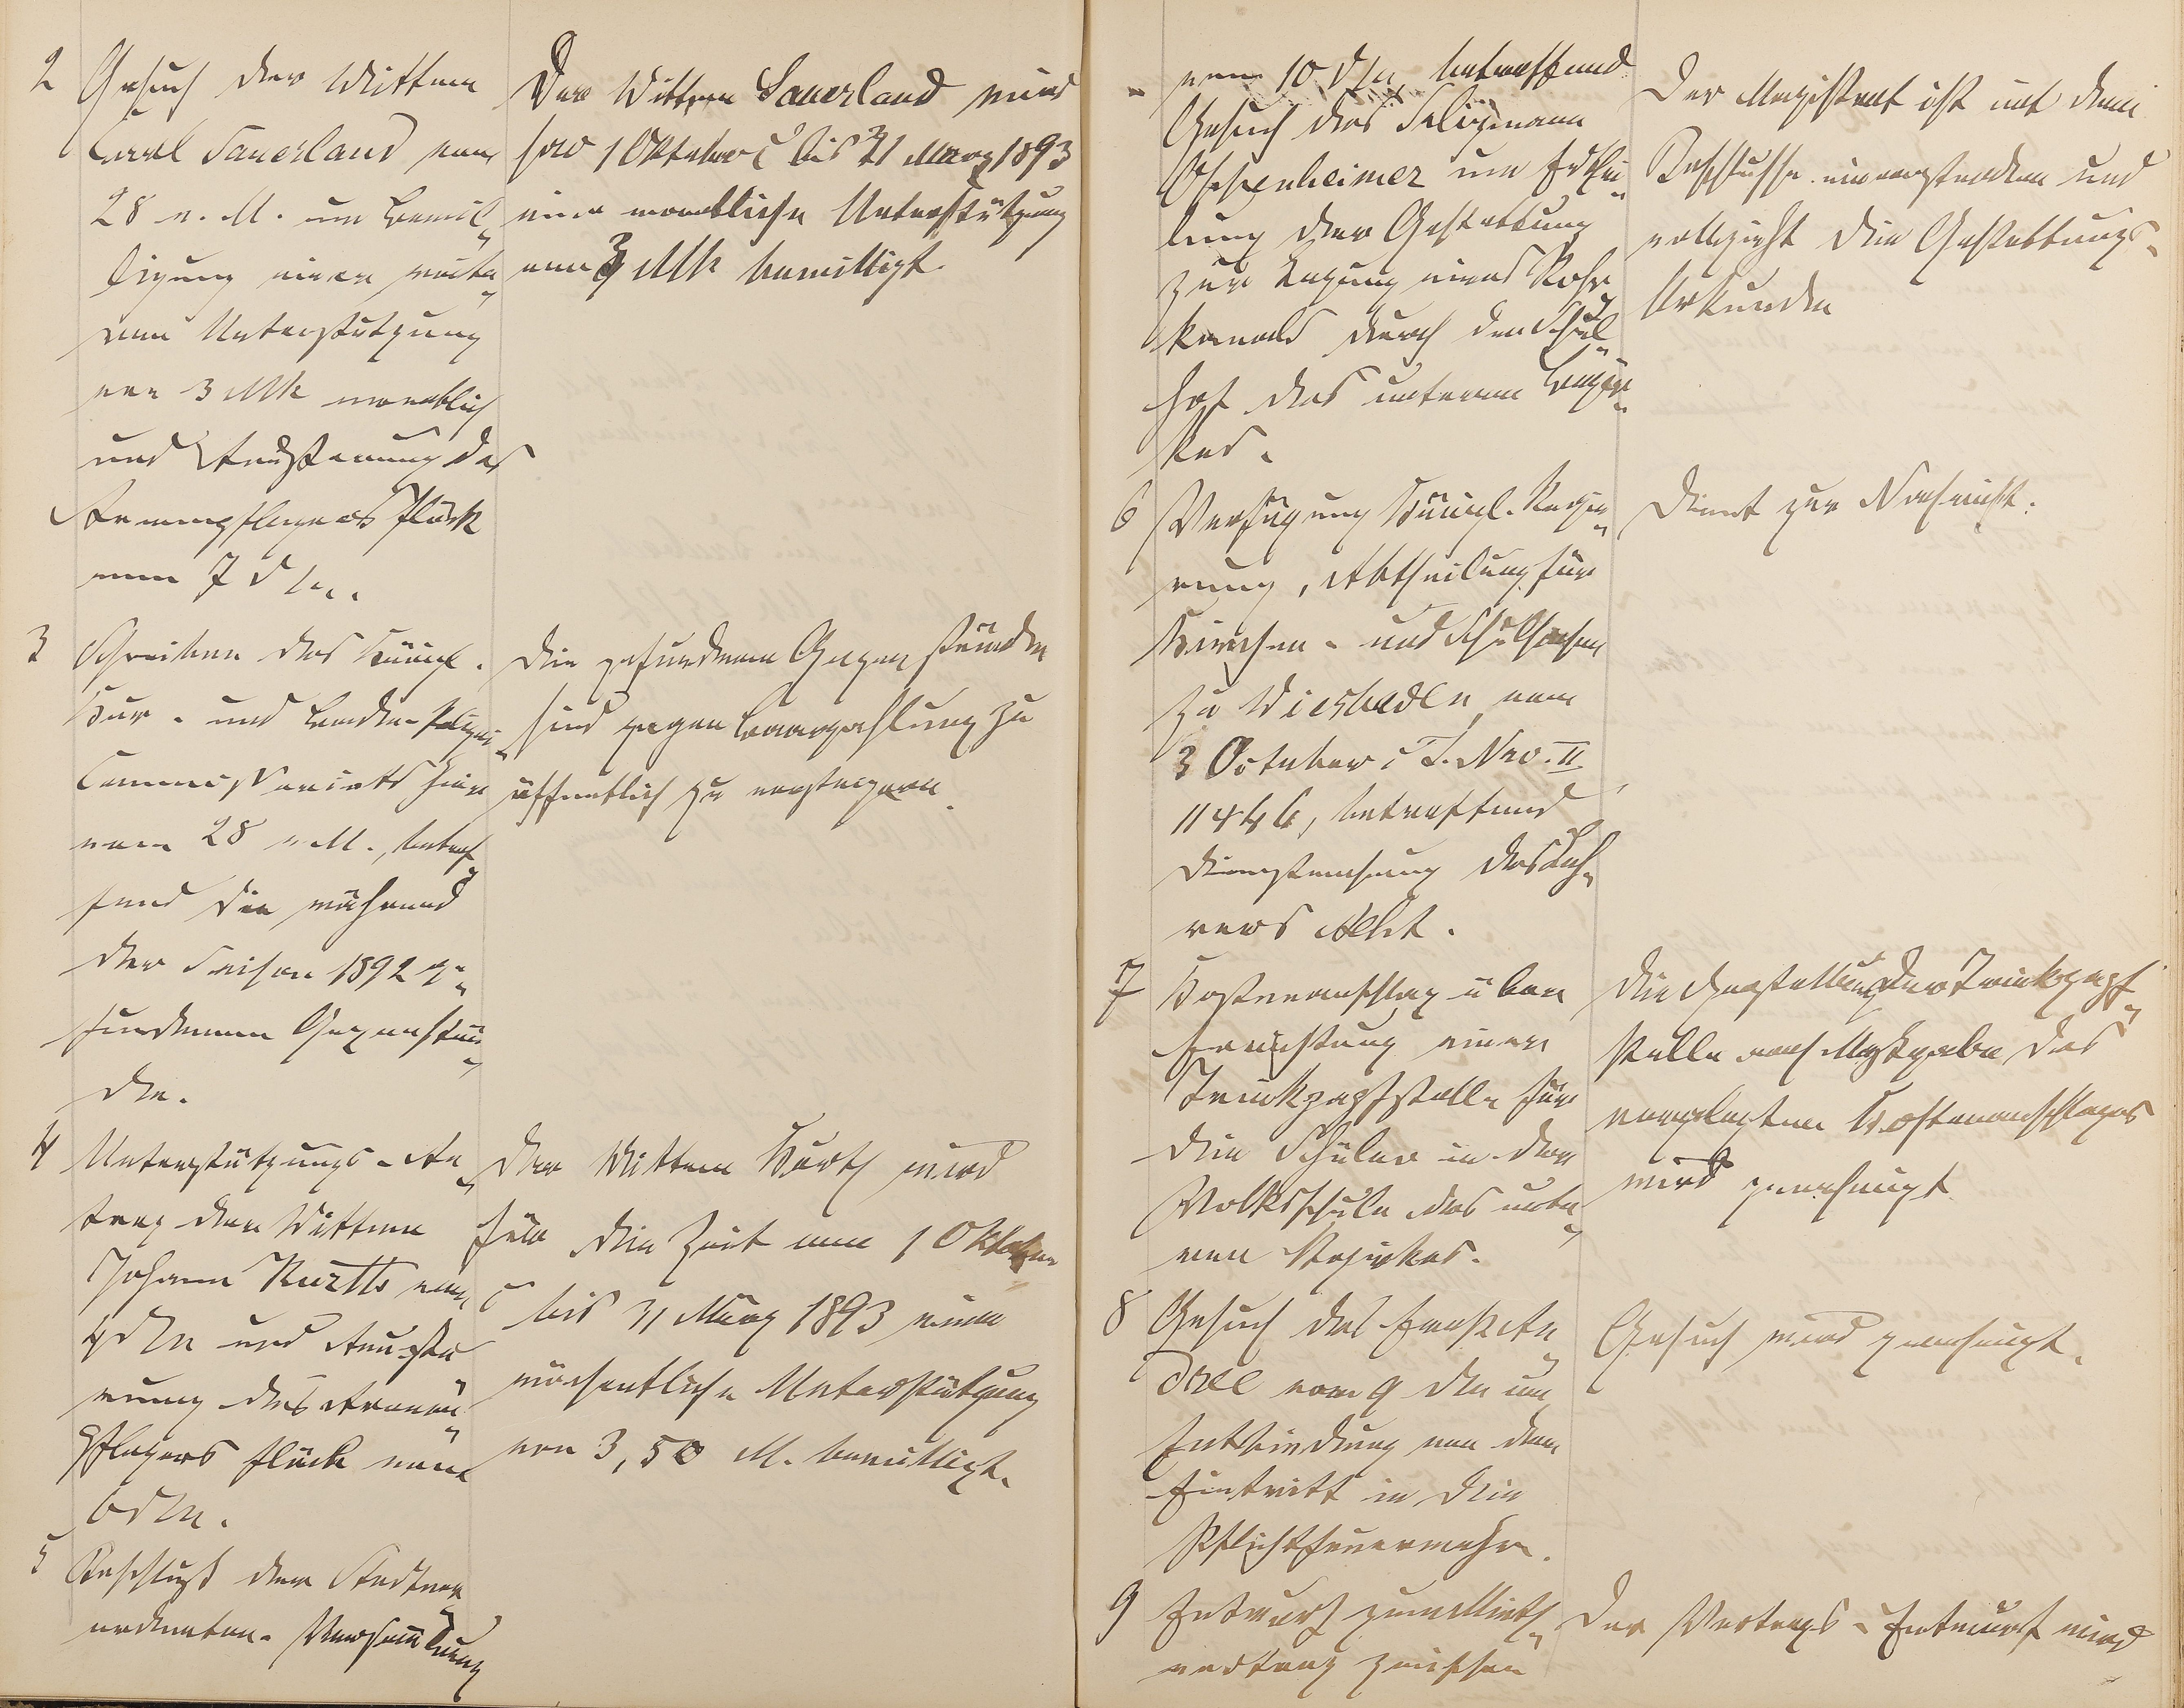 2 Gesuch der Wittwe
Carl Sauerland vom
28 v. M. um Bewil„
ligung einer weite„
ren Unterstützung
von 3 Mk monatlich
und Aeußerung des
Armenpflegers Flück
vom 7 d M.
Der Wittwe Sauerland wird
pro 1 Oktober c bis 31 März 1893
eine monatliche Unterstützung
von 3 Mk bewilligt.
3 Schreiben des Königl.
Kur- und Bade-Polizei„
Commissariats hier
vom 28 v. M., betref„
fend die während
der Saison 1892 ge„
fundenen Gegenstän„
de.
Die gefundenen Gegenstände
sind gegen Baarzahlung zu
öffentlich zu versteigern.
4 Unterstützungs-An„
trag der Wittwe
Johann Kurth vom
4 d M und Aeuße„
rung des Armen„
pflegers Flück vom
6 d M.
Der Wittwe Kurth wird
für die Zeit vom 1 Oktober
c bis 31 März 1893 eine
wöchentliche Unterstützung
von 3,50 M. bewilligt.
5 Beschluß der Stadtver„
ordneten-Versammlung
vom 10 d M betreffend
Gesuch des Seligmann
Oppenheimer um Erthei„
lung der Gestattung
zur Legung eines Rohr„
kanals durch den Schul„
hof des unteren Bezir„
kes.
Der Magistrat ist mit dem
Beschlusse einverstanden und
vollzieht die Gestattungs-
Urkunde
6 Verfügung Königl. Regie„
rung, Abtheilung für
Kirchen- und Schulsachen
zu Wiesbaden vom
3 October c J. Nro. II
11446, betreffend
Dienstentlassung des Leh„
rers Abt.
Dient zur Nachricht.
7 Kostenanschlag über
Errichtung einer
Trinkzapfstelle für
die Schüler in der
Volksschule des unte„
ren Bezirkes.
Die Herstellung der Trinkzapf„
stelle nach Maßgabe des
vorgelegten Kostenanschlages
wird genehmigt
8 Gesuch des Ernst An„
dree vom 9 d M um
Entbindung von dem
Eintritt in die
Pflichtfeuerwehr.
Gesuch wird genehmigt.
9 Entwurf zum Mieth„
vertrag zwischen
Der Vertrags-Entwurf wird